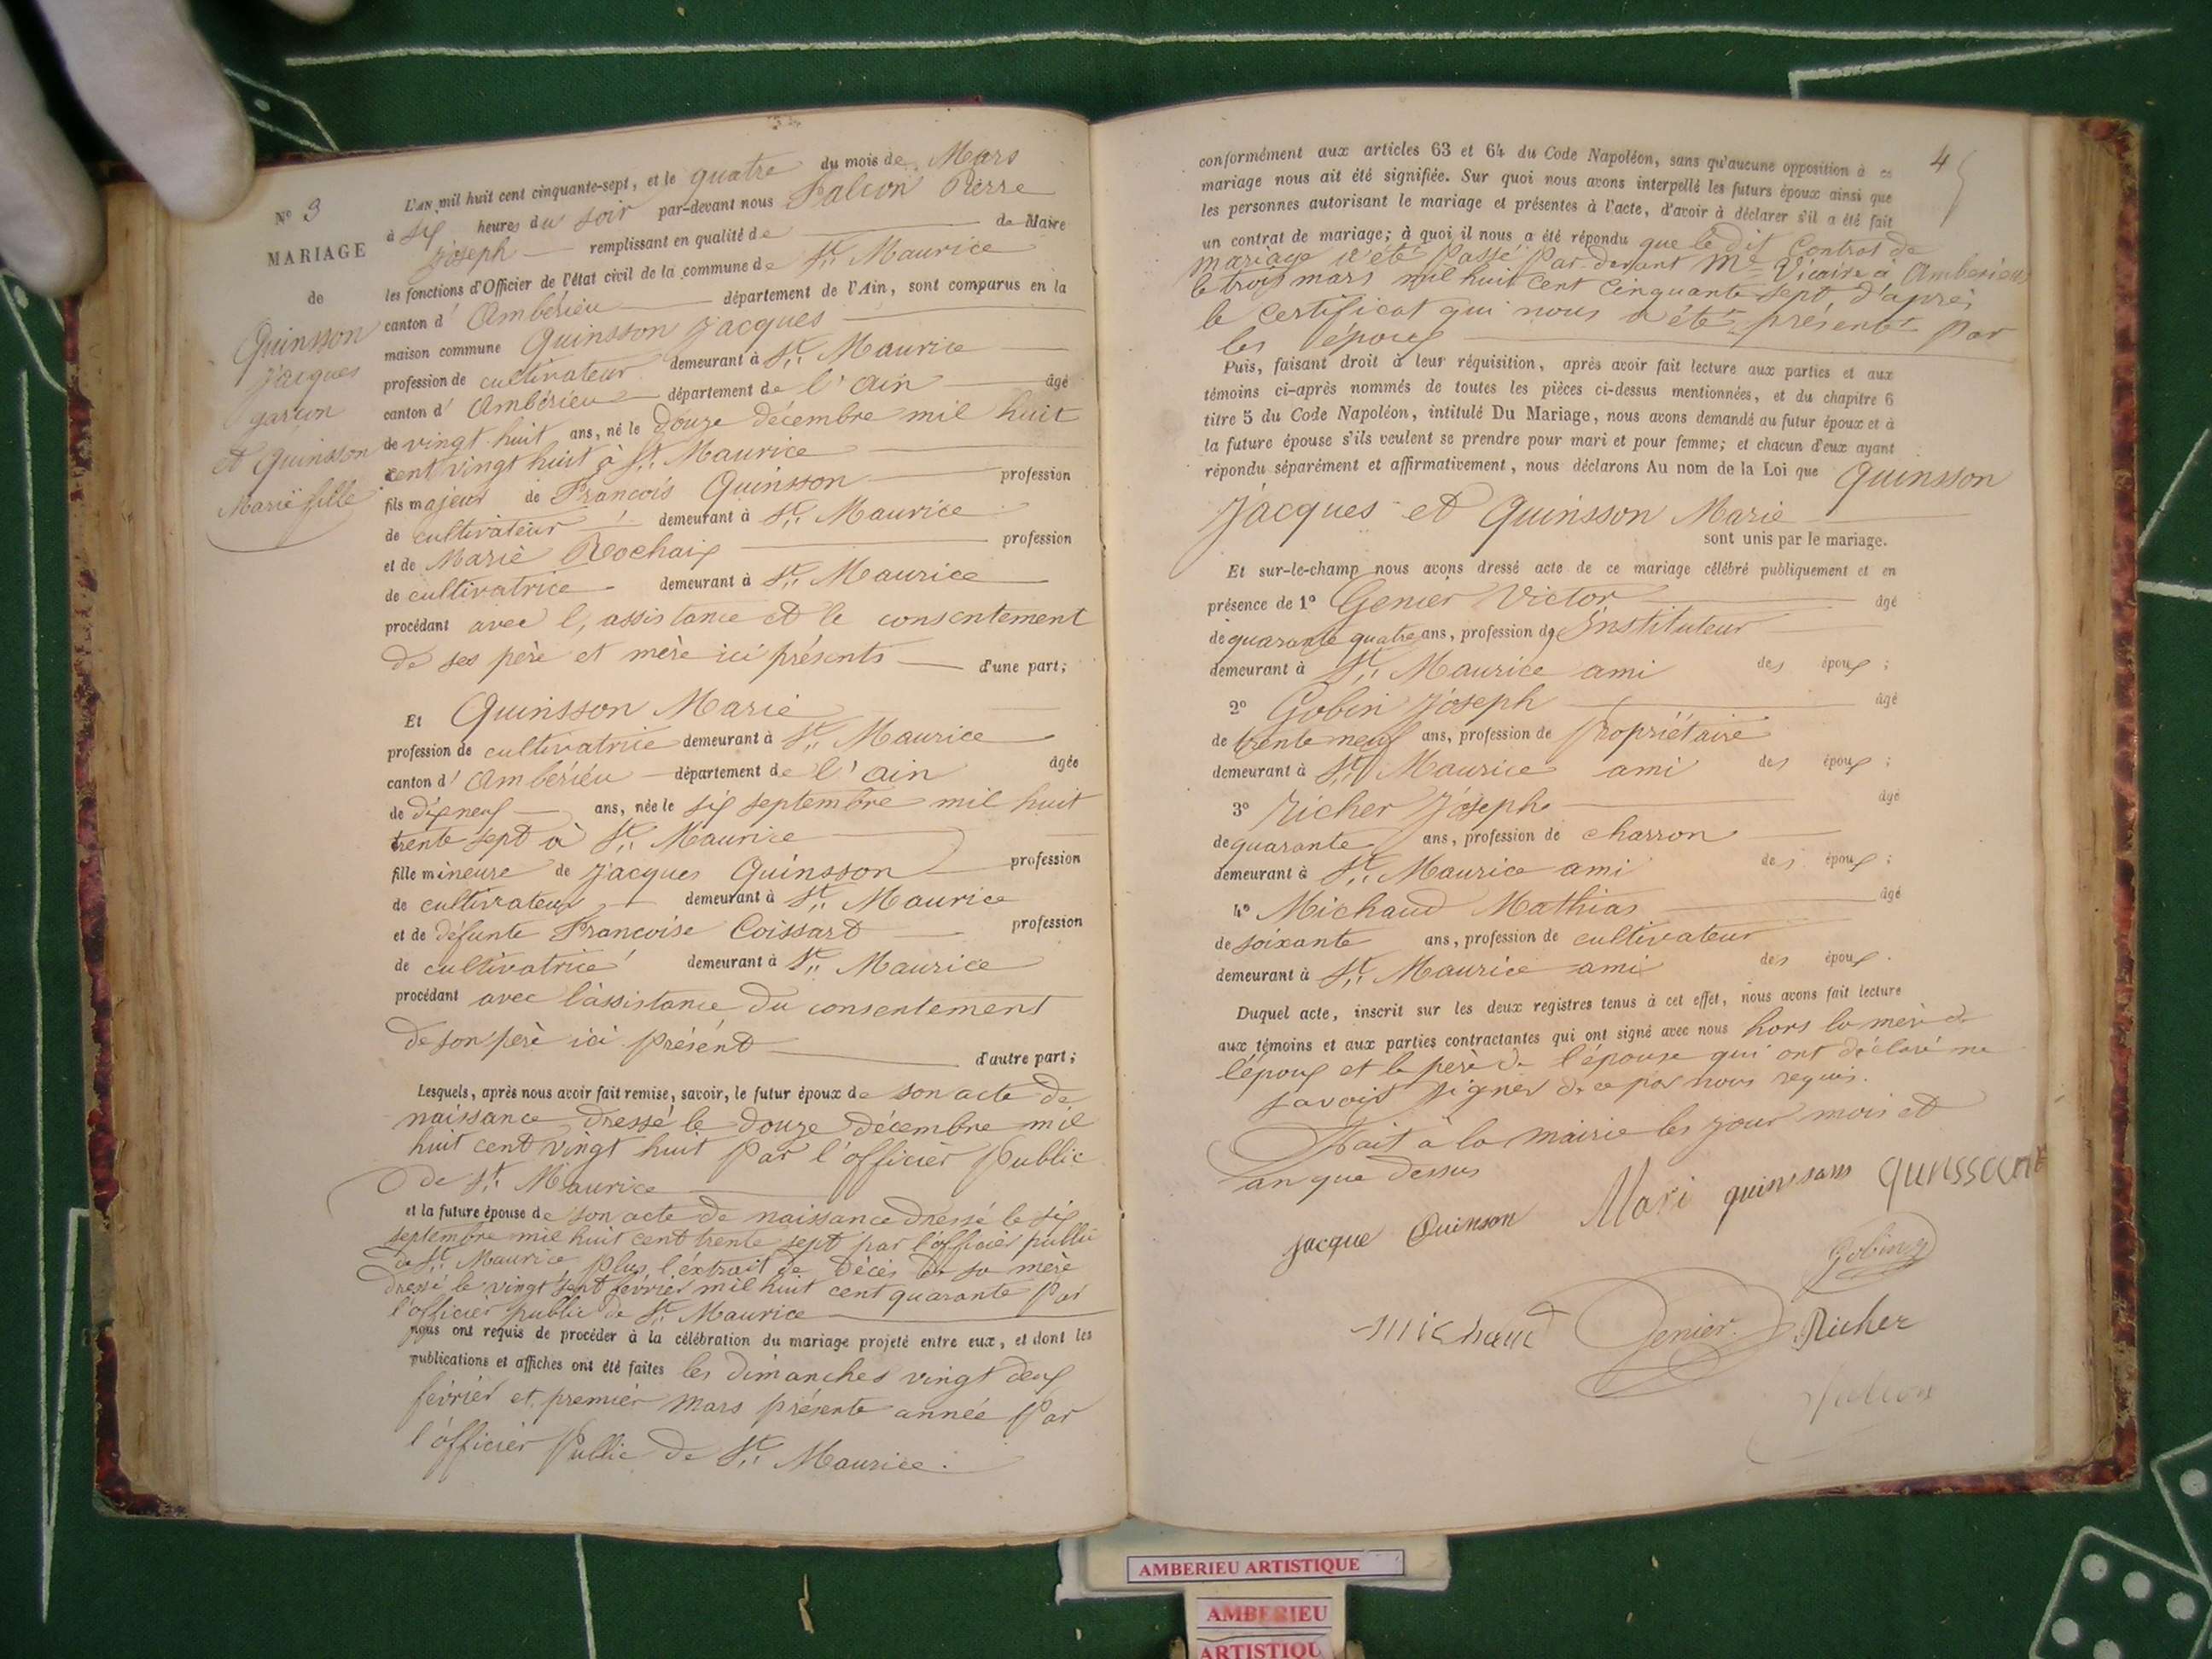 L'AN mil huit cent cinquante-sept, et le quatre du mois de Mars
à six heures du soir par-devant nous Falcon Pierre
Joseph remplissant en qualité de de Maire
les fonctions d'Officier de l'état civil de la commune de St. Maurice
canton d' Ambérieu département de l'Ain, sont comparus en la
maison commune Quinsson Jacques
profession de cultivateur demeurant à St. Maurice
canton d' Ambérieu département de l'ain âgé
de vingt huit ans, né le douze décembre mil huit
cent vingt huit à St. Maurice
fils majeur de Francois Quinsson profession
de cultivateur demeurant à St. Maurice
et de Marie Rochaix profession
de cultivatrice demeurant à St. Maurice
procédant avec l, assistance et le consentement
de ses père et mère ici présents d'une part;
Et Quinsson Marie
profession de cultivatrice demeurant à St. Maurice
canton d' Ambérieu département de l'ain âgée
de dixneuf ans, née le six septembre mil huit
trente sept à St. Maurice
fille mineure de Jacques Quinsson profession
de cultivateur demeurant à St. Maurice
et de défunte Francoise Coissard profession
de cultivatrice demeurant à St. Maurice
procédant avec l'assistance du consentement
de son père ici présent d'autre part;
Lesquels, après nous avoir fait remise, savoir, le futur époux de son acte de
naissance dressé le douze décembre mil
huit cent vingt huit par l'officier public
de St. Maurice
et la future épouse de son acte de naissance dressé le six
septembre mil huit cent trente sept par l'officier public
de St. Maurice, plus l'extrait de décès de sa mère
dressé le vingt sept février mil huit cent quarante par
l'officier public de St. Maurice
nous ont requis de procéder à la célébration du mariage projeté entre eux, et dont les
publications et affiches ont été faites les dimanches vingt deux
février et premier mars présente année par
l'officier Public de St. Maurice.
N° 3
MARIAGE
de
Quinsson
Jacques
garcon
et Quinsson
Marie fille
4
conformément aux articles 63 et 64 du Code Napoléon, sans qu'aucune opposition à ce
mariage nous ait été signifiée. Sur quoi nous avons interpellé les futurs époux ainsi que
les personnes autorisant le mariage et présentes à l'acte, d'avoir à déclarer s'il a été fait
un contrat de mariage; à quoi il nous a été répondu que le dit Contrat de
mariage a été passé par-devant Me Vicaire à Ambérieu
le trois mars mil huit cent cinquante sept, d'après
le certificat qui nous a été présenté par
les époux
Puis, faisant droit à leur réquisition, après avoir fait lecture aux parties et aux
témoins ci-après nommés de toutes les pièces ci-dessus mentionnées, et du chapitre 6
titre 5 du Code Napoléon, intitulé Du Mariage, nous avons demandé au futur époux et à
la future épouse s'ils veulent se prendre pour mari et pour femme; et chacun d'eux ayant
répondu séparément et affirmativement, nous déclarons Au nom de la Loi que Quinsson
Jacques et Quinsson Marie
sont unis par le mariage.
Et sur-le-champ nous avons dressé acte de ce mariage célébré publiquement et en
présence de 1° Genier Victor âgé
de quarante quatre ans, profession de Instituteur
demeurant à St. Maurice ami des époux ;
2° Gobin Joseph âgé
de trente neuf ans, profession de propriétaire
demeurant à St. Maurice ami des époux ;
3° Richer Joseph âgé
de quarante ans, profession de charron
demeurant à St. Maurice ami des époux ;
4° Michaud Mathias âgé
de soixante ans, profession de cultivateur
demeurant à St. Maurice ami des époux.
Duquel acte, inscrit sur les deux registres tenus à cet effet, nous avons fait lecture
aux témoins et aux parties contractantes qui ont signé avec nous hors la mère de
l'époux et le père de l'épouse qui ont déclaré ne
savoir signer de ce par nous requis.
Fait à la mairie les jour mois et
an que dessus
jacque Quinson Mari quinssans
Gobin
michaud Genier Richer
Falcon
AMBERIEU ARTISTIQUE
AMBERIEU
ARTISTIQU